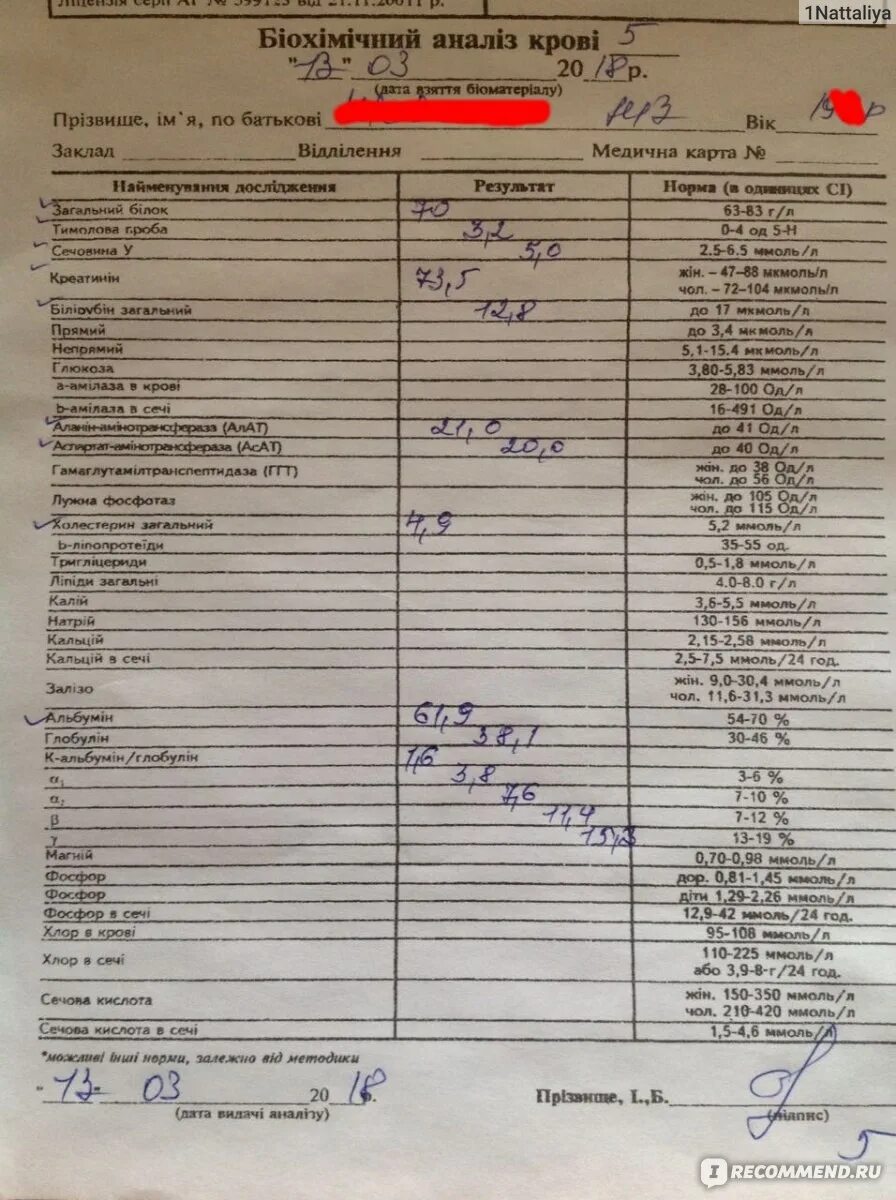 1Nattaliya
Біохімічний аналіз крові 5
"13" 03 2018р.
(дата взяття біоматеріалу)
Прізвище, ім`я, по батькові Вік 19 р
Заклад Відділення Медична карта №
Найменування дослідження Результат Норма (в одиницях СІ)
Загальний білок 70 63-83 г/л
Тимолова проба 3,2 0-4 од S-H
Сечовина У 5,0 2.5-6.5 ммоль/л
Креатинін 73,5 жін. – 47–88 мкмоль/л
чол. – 72–104 мкмоль/л
Білірубін загальний 12,8 до 17 мкмоль/л
Прямий до 3,4 мкмоль/л
Непрямий 5,1-15.4 мкмоль/л
Глюкоза 3,80-5,83 ммоль/л
a-амілаза в крові 28-100 Од/л
b-амілаза в сечі 16-491 Од/л
Аланін-амінотрансфераза (АлАТ) 21,0 до 41 Од/л
Аспартат-амінотрансфераза (АсАТ) 20,0 до 40 Од/л
Гамаглутамілтранспептидаза (ГГТ) жін. до 38 Од/л
чол. до 56 Од/л
Лужна фосфотаз жін. до 105 Од/л
чол. до 115 Од/л
Холестерин загальний 4,9 5,2 ммоль/л
b-ліпопротеїди 35-55 од.
Тригліцериди 0,5-1,8 ммоль/л
Ліпіди загальні 4.0-8.0 г/л
Калій 3,6-5,5 ммоль/л
Натрій 130-156 ммоль/л
Кальцій 2,15-2,58 ммоль/л
Кальцій в сечі 2,5-7,5 ммоль/24 год.
Залізо жін. 9,0-30,4 ммоль/л
чол. 11,6-31,3 ммоль/л
Альбумін 61,9 54-70 %
Глобулін 38,1 30-46 %
К-альбумін/глобулін 1,6
α₁ 3,8 3-6 %
α₂ 7,6 7-10 %
β 11,4 7-12 %
γ 15,3 13-19 %
Магній 0,70-0,98 ммоль/л
Фосфор дор. 0,81-1,45 ммоль/л
Фосфор діти 1,29-2,26 ммоль/л
Фосфор в сечі 12,9-42 ммоль/24 год.
Хлор в крові 95-108 ммоль/л
Хлор в сечі 110-225 ммоль/л
або 3,9-8-г/24 год.
Сечова кислота жін. 150-350 ммоль/л
чол. 210-420 ммоль/л
Сечова кислота в сечі 1,5-4,6 ммоль/л
*можливі інші норми, залежно від методики
"13" 03 2018. Прізвище, І.,Б.
(дата видачі аналізу) (підпис)
5
IRECOMMEND.RU